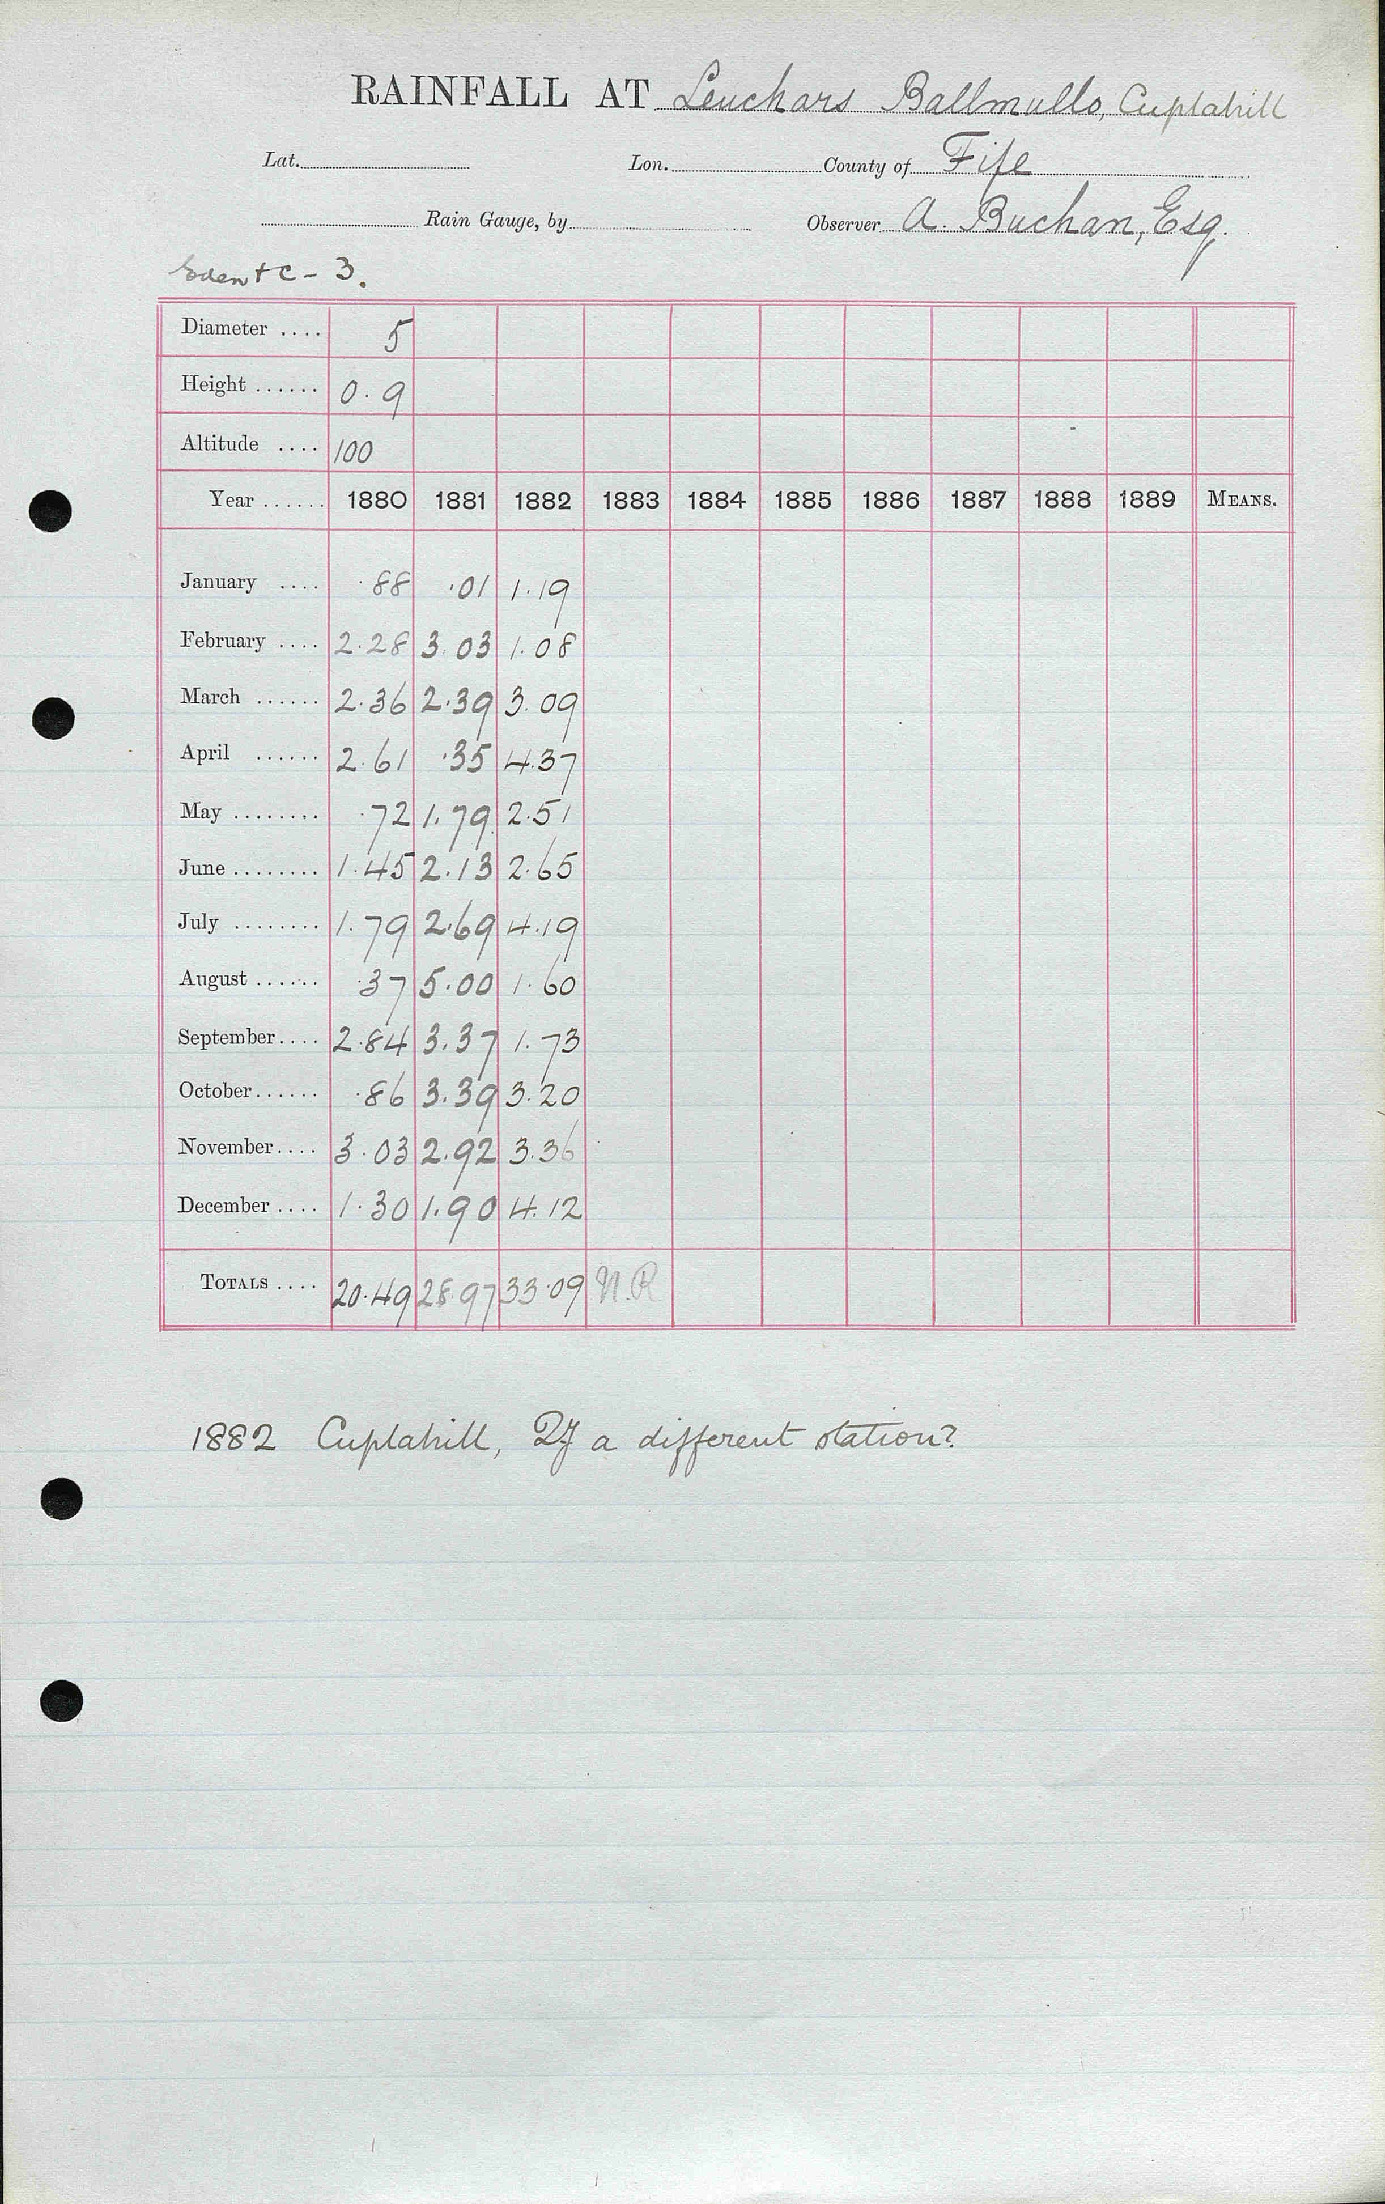 RAINFALL AT Leuchars Ballmullo, Cuplahill
Lat. Lon. County of Fife
Rain Gauge, by Observer A. Buchan, Esq.
Eden + C - 3.
Diameter .... 5
Height ...... 0.9
Altitude .... 100
Year ...... 1880 1881 1882 1883 1884 1885 1886 1887 1888 1889 MEANS.
January .... .88 .01 1.19
February .... 2.28 3.03 1.08
March ...... 2.36 2.39 3.09
April ...... 2.61 .35 4.37
May ........ .72 1.79 2.51
June ........ 1.45 2.13 2.65
July ........ 1.79 2.69 4.19
August ...... .37 5.00 1.60
September.... 2.84 3.37 1.73
October...... .86 3.39 3.20
November.... 3.03 2.92 3.36
December .... 1.30 1.90 4.12
TOTALS .... 20.49 28.97 33.09 N.R
1882 Cuplahill, Qy a different station?